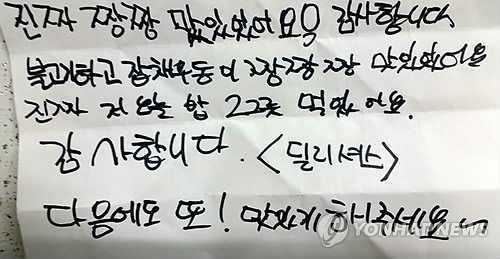 진짜 짱짱 맜있있어요욕 감사합니다
불고기하고 잡채우동이 짱짱짱 맛있있어욤
진자 저 오늘 밥 2그릇 먹었어요.
감사합니다. <딜리셔스>
다음에도 또! 맛있게 해주세요~
YONHAP NEWS